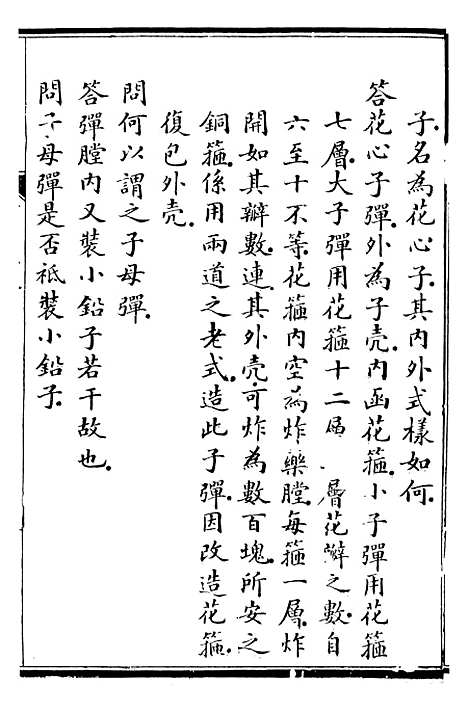 子名為花心子其内外式樣如何
答花心子彈外為子壳内函花箍小子彈用花箍
七層大子彈用花箍十二層 層花瓣之數自
六至十不等花箍内空為炸藥膛每箍一層炸
開如其瓣數連其外壳可炸為數百塊所安之
銅箍係用兩道之老式造此子彈因改造花箍
復包外壳
問何以謂之子母彈
答彈膛内又裝小鉛子若干故也
問子母彈是否袛裝小鉛子